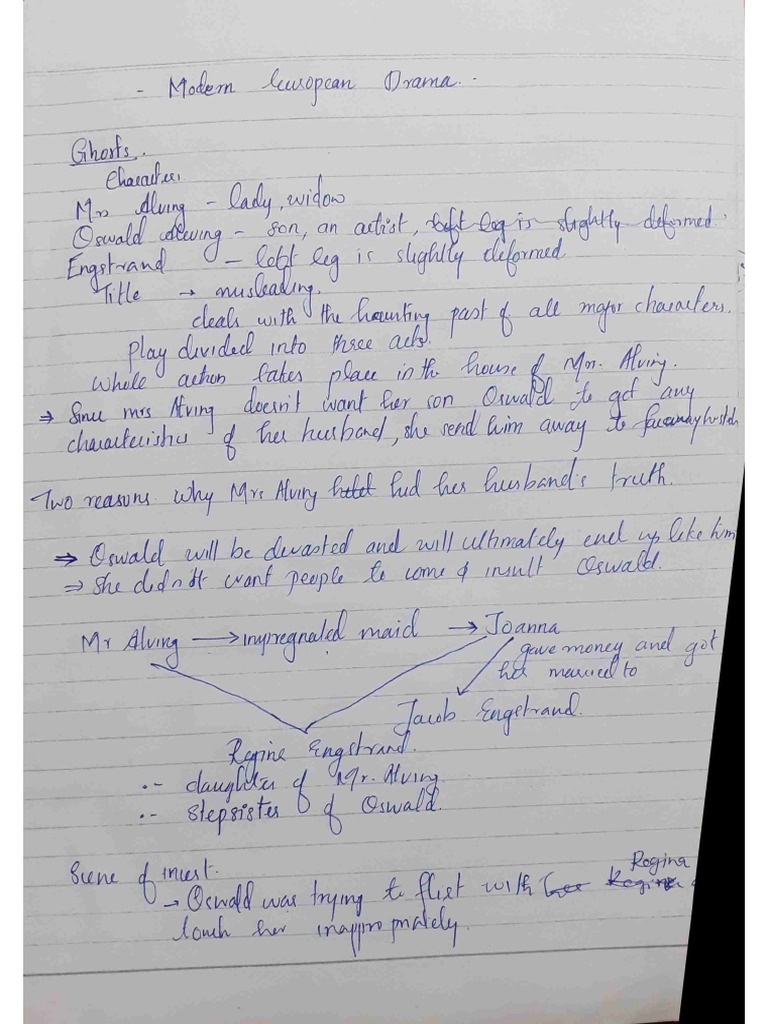 - Modern European Drama. -
Ghosts.
Characters.
Mrs Alving - lady, widow
Oswald Alving - son, an artist, left leg is slightly deformed.
Engstrand - left leg is slightly deformed
Title → misleading.
deals with the haunting past of all major characters.
Play divided into three acts.
Whole action takes place in the house of Mrs. Alving.
⇒ Since mrs Alving doesn't want her son Oswald to get any
characteristics of her husband, she send him away to
Two reasons why Mrs Alving hid her husband's truth.
⇒ Oswald will be devasted and will ultimately end up like him
⇒ She didn't want people to come & insult Oswald.
Mr Alving → impregnated maid → Joanna
gave money and got
her married to
Jacob Engstrand.
Regine Engstrand.
.- daughter of Mr. Alving
.- stepsister of Oswald.
Scene of incest.
Regina
→ Oswald was trying to flirt with her Regina
touch her inappropriately.